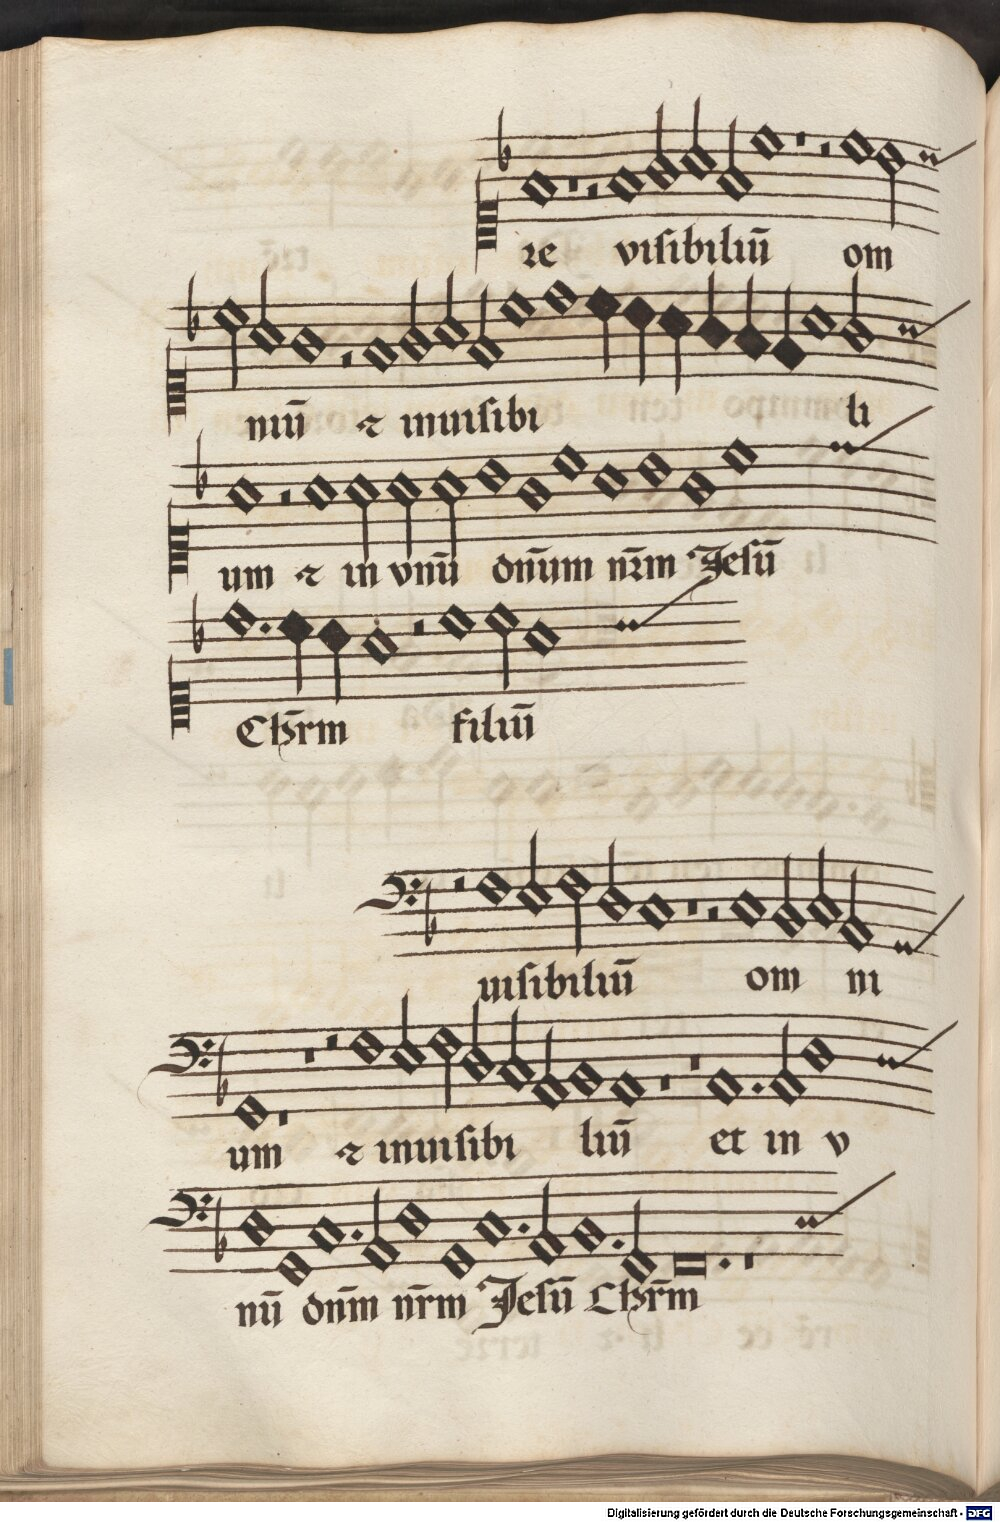 re visibiliū om
niū ⁊ inuisibi li
um ⁊ in vnū dn̄um nr̄m Jesū
Chr̄m filiū
uisibiliū om ni
um ⁊ inuisibi liū et in v
nū dn̄m nr̄m Jesū Chr̄m
Digitalisierung gefördert durch die Deutsche Forschungsgemeinschaft - DFG